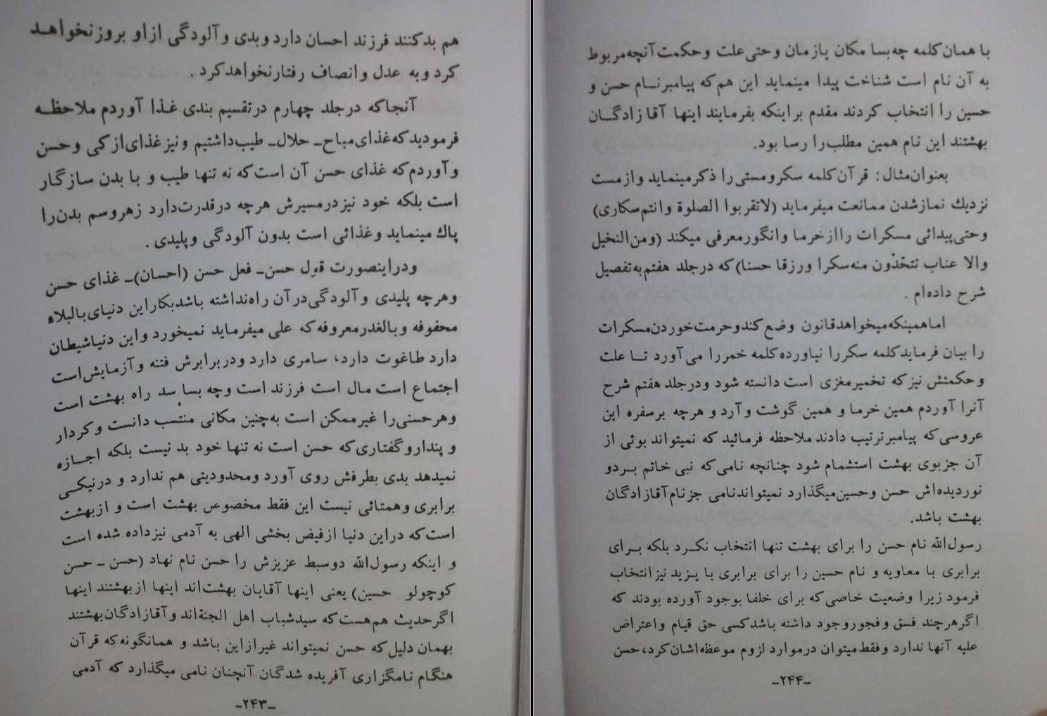 هم بدکنند فرزند احسان دارد وبدی و آلودگی ازاو بروزنخواهد
کرد وبه عدل وانصاف رفتارنخواهدکرد .
آنجاکه درجلد چهارم درتقسیم بندی غذا آوردم ملاحظه
فرمودیدکه غذای مباح ـ حلال ـ طیب‌داشتیم و نیز غذای ازکی وحسن
وآوردم‌که غذای حسن آن است‌که نه تنها طیب و با بدن سازگار
است بلکه خود نیز درمسیرش هرچه درقدرت‌دارد زهروسم بدن‌را
پاك مینماید وغذائی است بدون آلودگی وپلیدی .
ودراینصورت قول حسن ـ فعل حسن (احسان) ـ غذای حسن
وهرچه پلیدی و آلودگی‌درآن راه‌نداشته باشدبکاراین دنیای‌بالبلاء
محفوفه وبالغدرمعروفه‌که علی میفرماید نمیخورد واین دنیاشیطان
دارد طاغوت دارد، سامری دارد ودربرابرش فتنه وآزمایش‌است
اجتماع است مال است فرزند است وچه بسا سد راه بهشت است
وهرحسنی‌را غیرممکن است به‌چنین مکانی منتسب دانست وکردار
و پنداروگفتاری‌که حسن است نه تنها خود بد نیست بلکه اجازه
نمیدهد بدی بطرفش روی آورد ومحدودیتی هم ندارد و درنیکی
برابری وهمتائی نیست این فقط مخصوص بهشت است و ازبهشت
است‌که دراین دنیا ازفیض بخشی الهی به آدمی نیزداده شده است
و اینکه رسول‌الله دوسبط عزیزش را حسن نام نهاد (حسن ـ حسن
کوچولو حسین) یعنی اینها آقایان بهشت‌اند اینها ازبهشتند اینها
اگرحدیث هم‌هست‌که سیدشباب اهل الجنة‌اند و آقازادگان‌بهشتند
بهمان دلیل‌که حسن نمیتواند غیرازاین باشد و همانگونه‌که قرآن
هنگام نامگزاری آفریده شدگان آنچنان نامی میگذارد که آدمی
ـ۲۴۳ـ
با همان‌کلمه چه‌بسا مکان یا زمان وحتی علت وحکمت آنچه‌مربوط
به آن نام است شناخت پیدا مینماید این هم‌که پیامبرنام حسن و
حسین را انتخاب کردند مقدم براینکه بفرمایند اینها آقا زادگان
بهشتند این نام همین مطلب‌را رسا بود.
بعنوان‌مثال : قرآن‌کلمه سکرومستی‌را ذکرمینماید وازمست
نزدیك نمازشدن ممانعت میفرماید (لاتقربوا الصلوة وانتم‌سکاری)
وحتی‌پیدائی مسکرات را ازخرما وانگورمعرفی میکند (ومن‌النخیل
والا عناب تتخذون منه‌سکرا ورزقا حسنا)که درجلد هفتم‌به‌تفصیل
شرح داده‌ام .
اماهمینکه‌میخواهدقانون وضع‌کندوحرمت‌خوردن‌مسکرات
را بیان فرمایدکلمه سکررا نیاورده‌کلمه خمررا می‌آورد تا علت
وحکمتش نیزکه تخمیرمغزی است دانسته شود ودرجلد هفتم شرح
آنرا آوردم همین خرما و همین گوشت وآرد و هرچه برسفره این
عروسی‌که پیامبرترتیب دادند ملاحظه فرمائید که نمیتواند بوئی از
آن جزبوی بهشت استشمام شود چنانچه نامی‌که نبی خاتم بردو
نوردیده‌اش حسن وحسین‌میگذارد نمیتواندنامی جزنام‌آقازادگان
بهشت باشد.
رسول‌الله نام حسن را برای بهشت تنها انتخاب نکرد بلکه برای
برابری با معاویه و نام حسین را برای برابری با یزید نیزانتخاب
فرمود زیرا وضعیت خاصی‌که برای خلفا بوجود آورده بودند که
اگرهرچند فسق وفجوروجود داشته باشدکسی حق قیام واعتراض
علیه آنها ندارد وفقط‌میتوان درموارد لزوم موعظه‌اشان‌کرد،حسن
ـ۲۴۴ـ